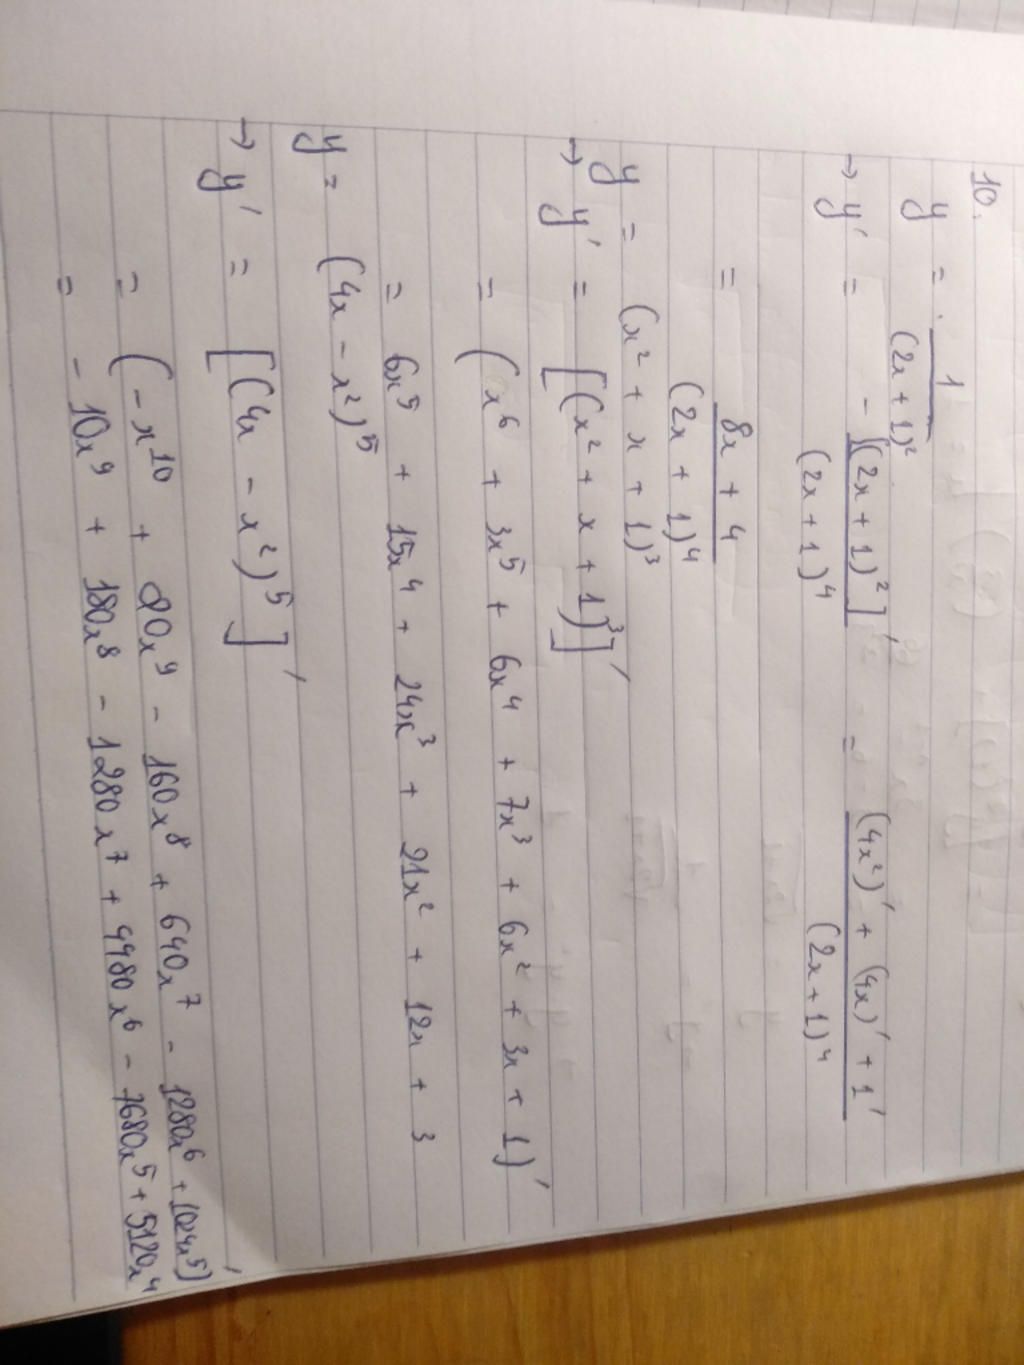 10.
y = 1/(2x + 1)²
→ y' = -[(2x + 1)²]'/(2x + 1)⁴ = (4x²)' + (4x)' + 1'/(2x + 1)⁴
= 8x + 4/(2x + 1)⁴
y = (x² + x + 1)³
→ y' = [(x² + x + 1)³]'
= (x⁶ + 3x⁵ + 6x⁴ + 7x³ + 6x² + 3x + 1)'
= 6x⁵ + 15x⁴ + 24x³ + 21x² + 12x + 3
y = (4x - x²)⁵
→ y' = [(4x - x²)⁵]'
= (-x¹⁰ + 20x⁹ - 160x⁸ + 640x⁷ - 1280x⁶ + 1024x⁵)'
= -10x⁹ + 180x⁸ - 1280x⁷ + 4480x⁶ - 7680x⁵ + 5120x⁴